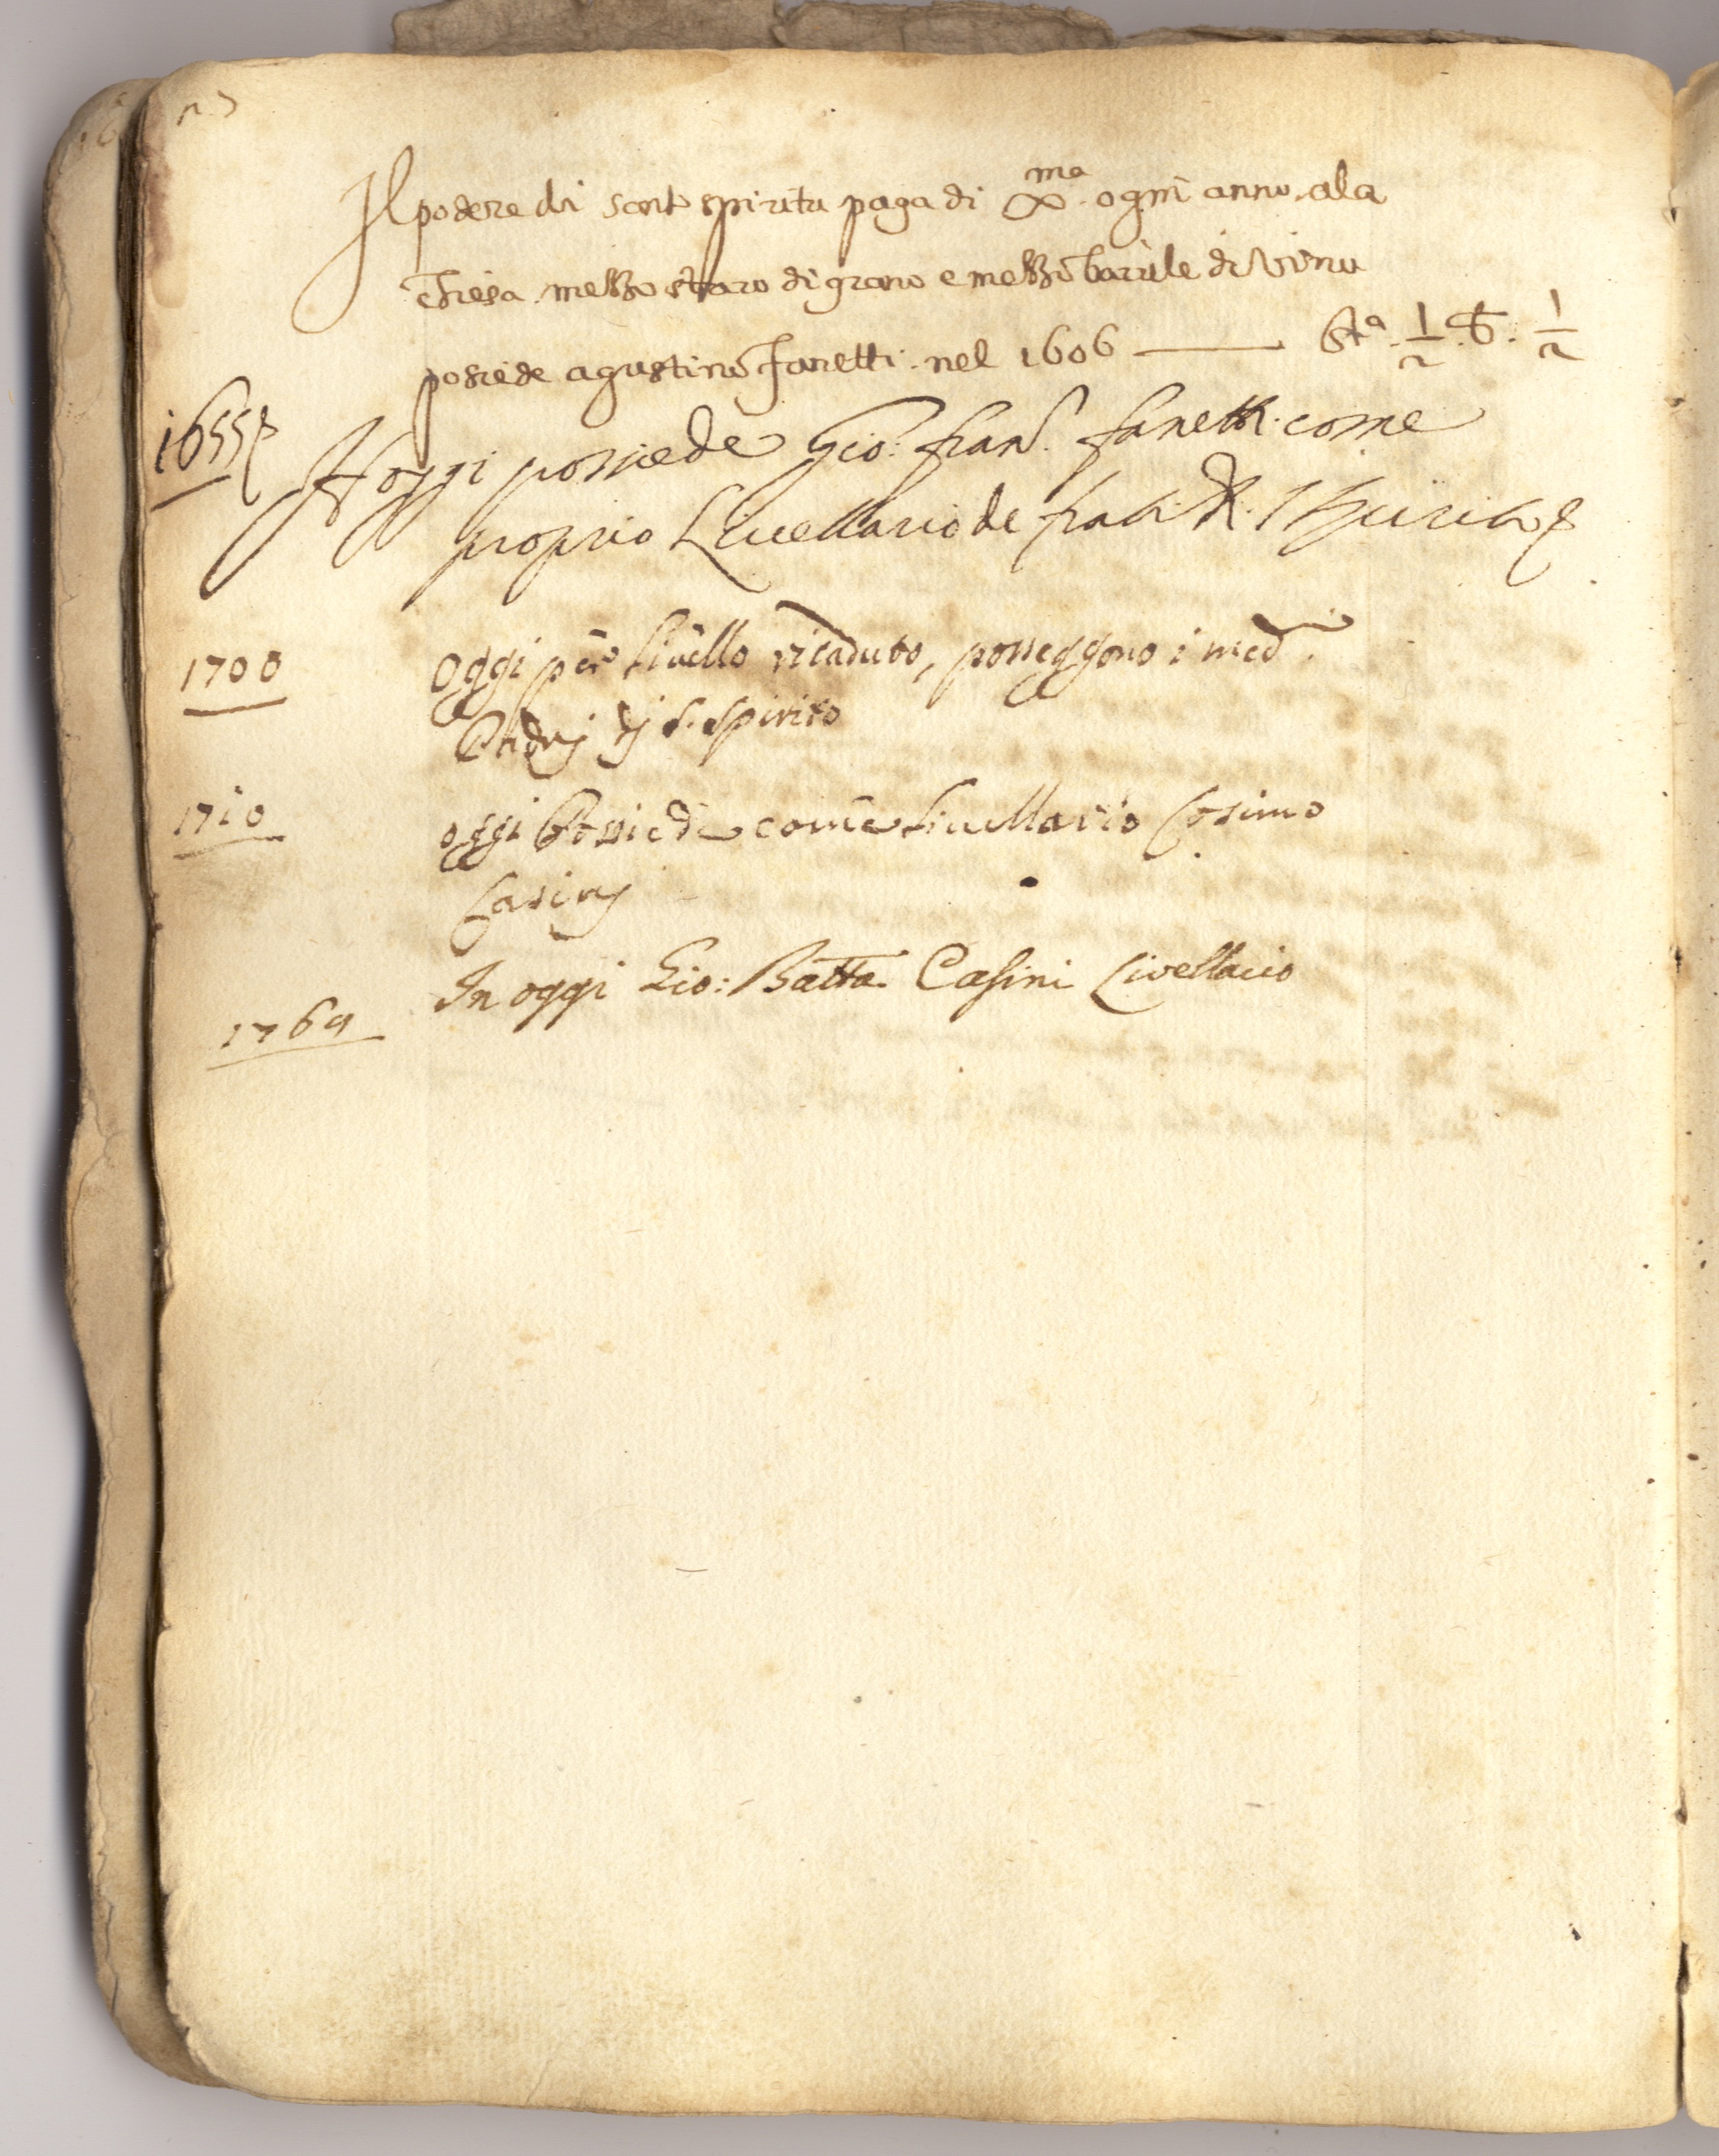 Il podere di santo spiritu paga di Xma ogni anno ala
chiesa mezzo staro di grano e mezzo barile di vinu
posiede agustino fanetti nel 1606 — Sta ½ B ½
1655
Hoggi possiede Gio: Fran. fanetti come
proprio Livellario de frati di S Spirito
1700
Oggi per livello ricaduto, posseggono i med.
Padrj dj S. Spirito
1710
oggi Possiede come livellario Cosimo
Casinj
In oggi Gio: Batta Casini Livellario
1769